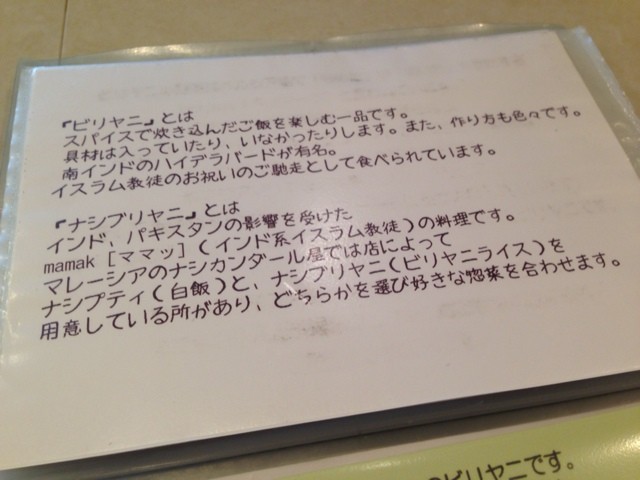 『ビリヤニ』とは
スパイスで炊き込んだご飯を楽しむ一品です。
具材は入っていたり、いなかったりします。また、作り方も色々です。
南インドのハイデラバードが有名。
イスラム教徒のお祝いのご馳走として食べられています。
『ナシブリヤニ』とは
インド、パキスタンの影響を受けた
mamak[ママッ](インド系イスラム教徒)の料理です。
マレーシアのナシカンダール屋では店によって
ナシプティ(白飯)と、ナシブリヤニ(ビリヤニライス)を
用意している所があり、どちらかを選び好きな惣菜を合わせます。
のビリヤニです。